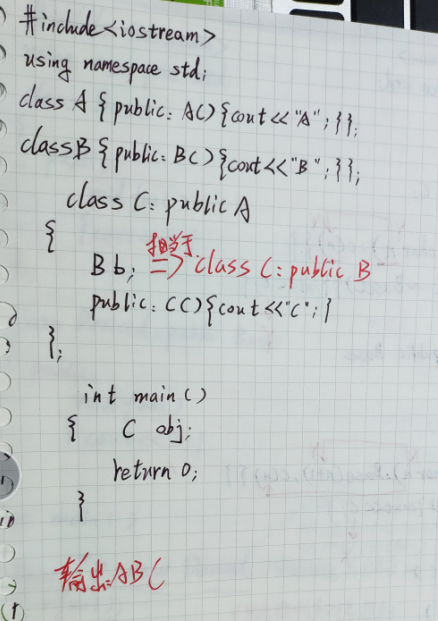 #include<iostream>
using namespace std;
class A { public: A(){cout<<"A";}};
class B { public: B(){cout<<"B";}};
class C: public A
{
相当于
B b; => class C: public B
public: C(){cout<<"C";}
};
int main()
{ C obj;
return 0;
}
输出:ABC